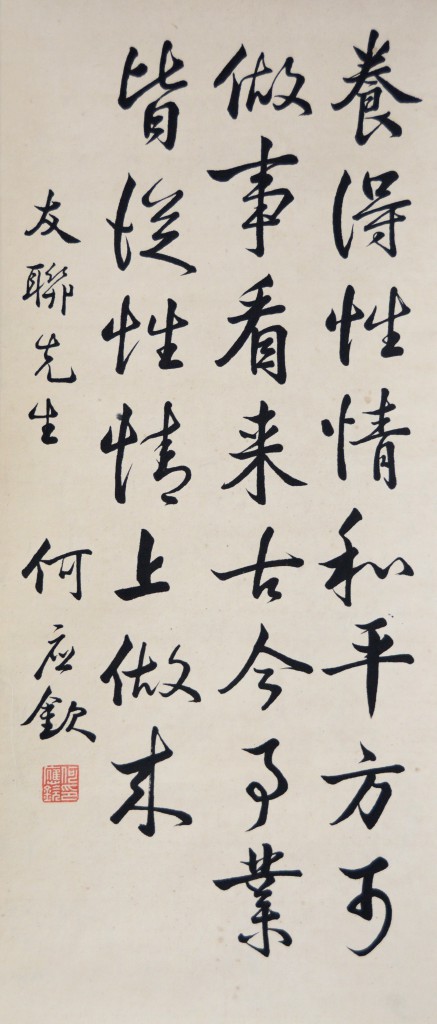 養得性情和平方可
做事看来古今事業
皆從性情上做来
友聯先生
何應欽
何應欽印